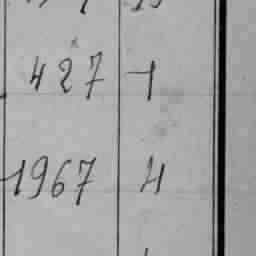 427 1
1967 4